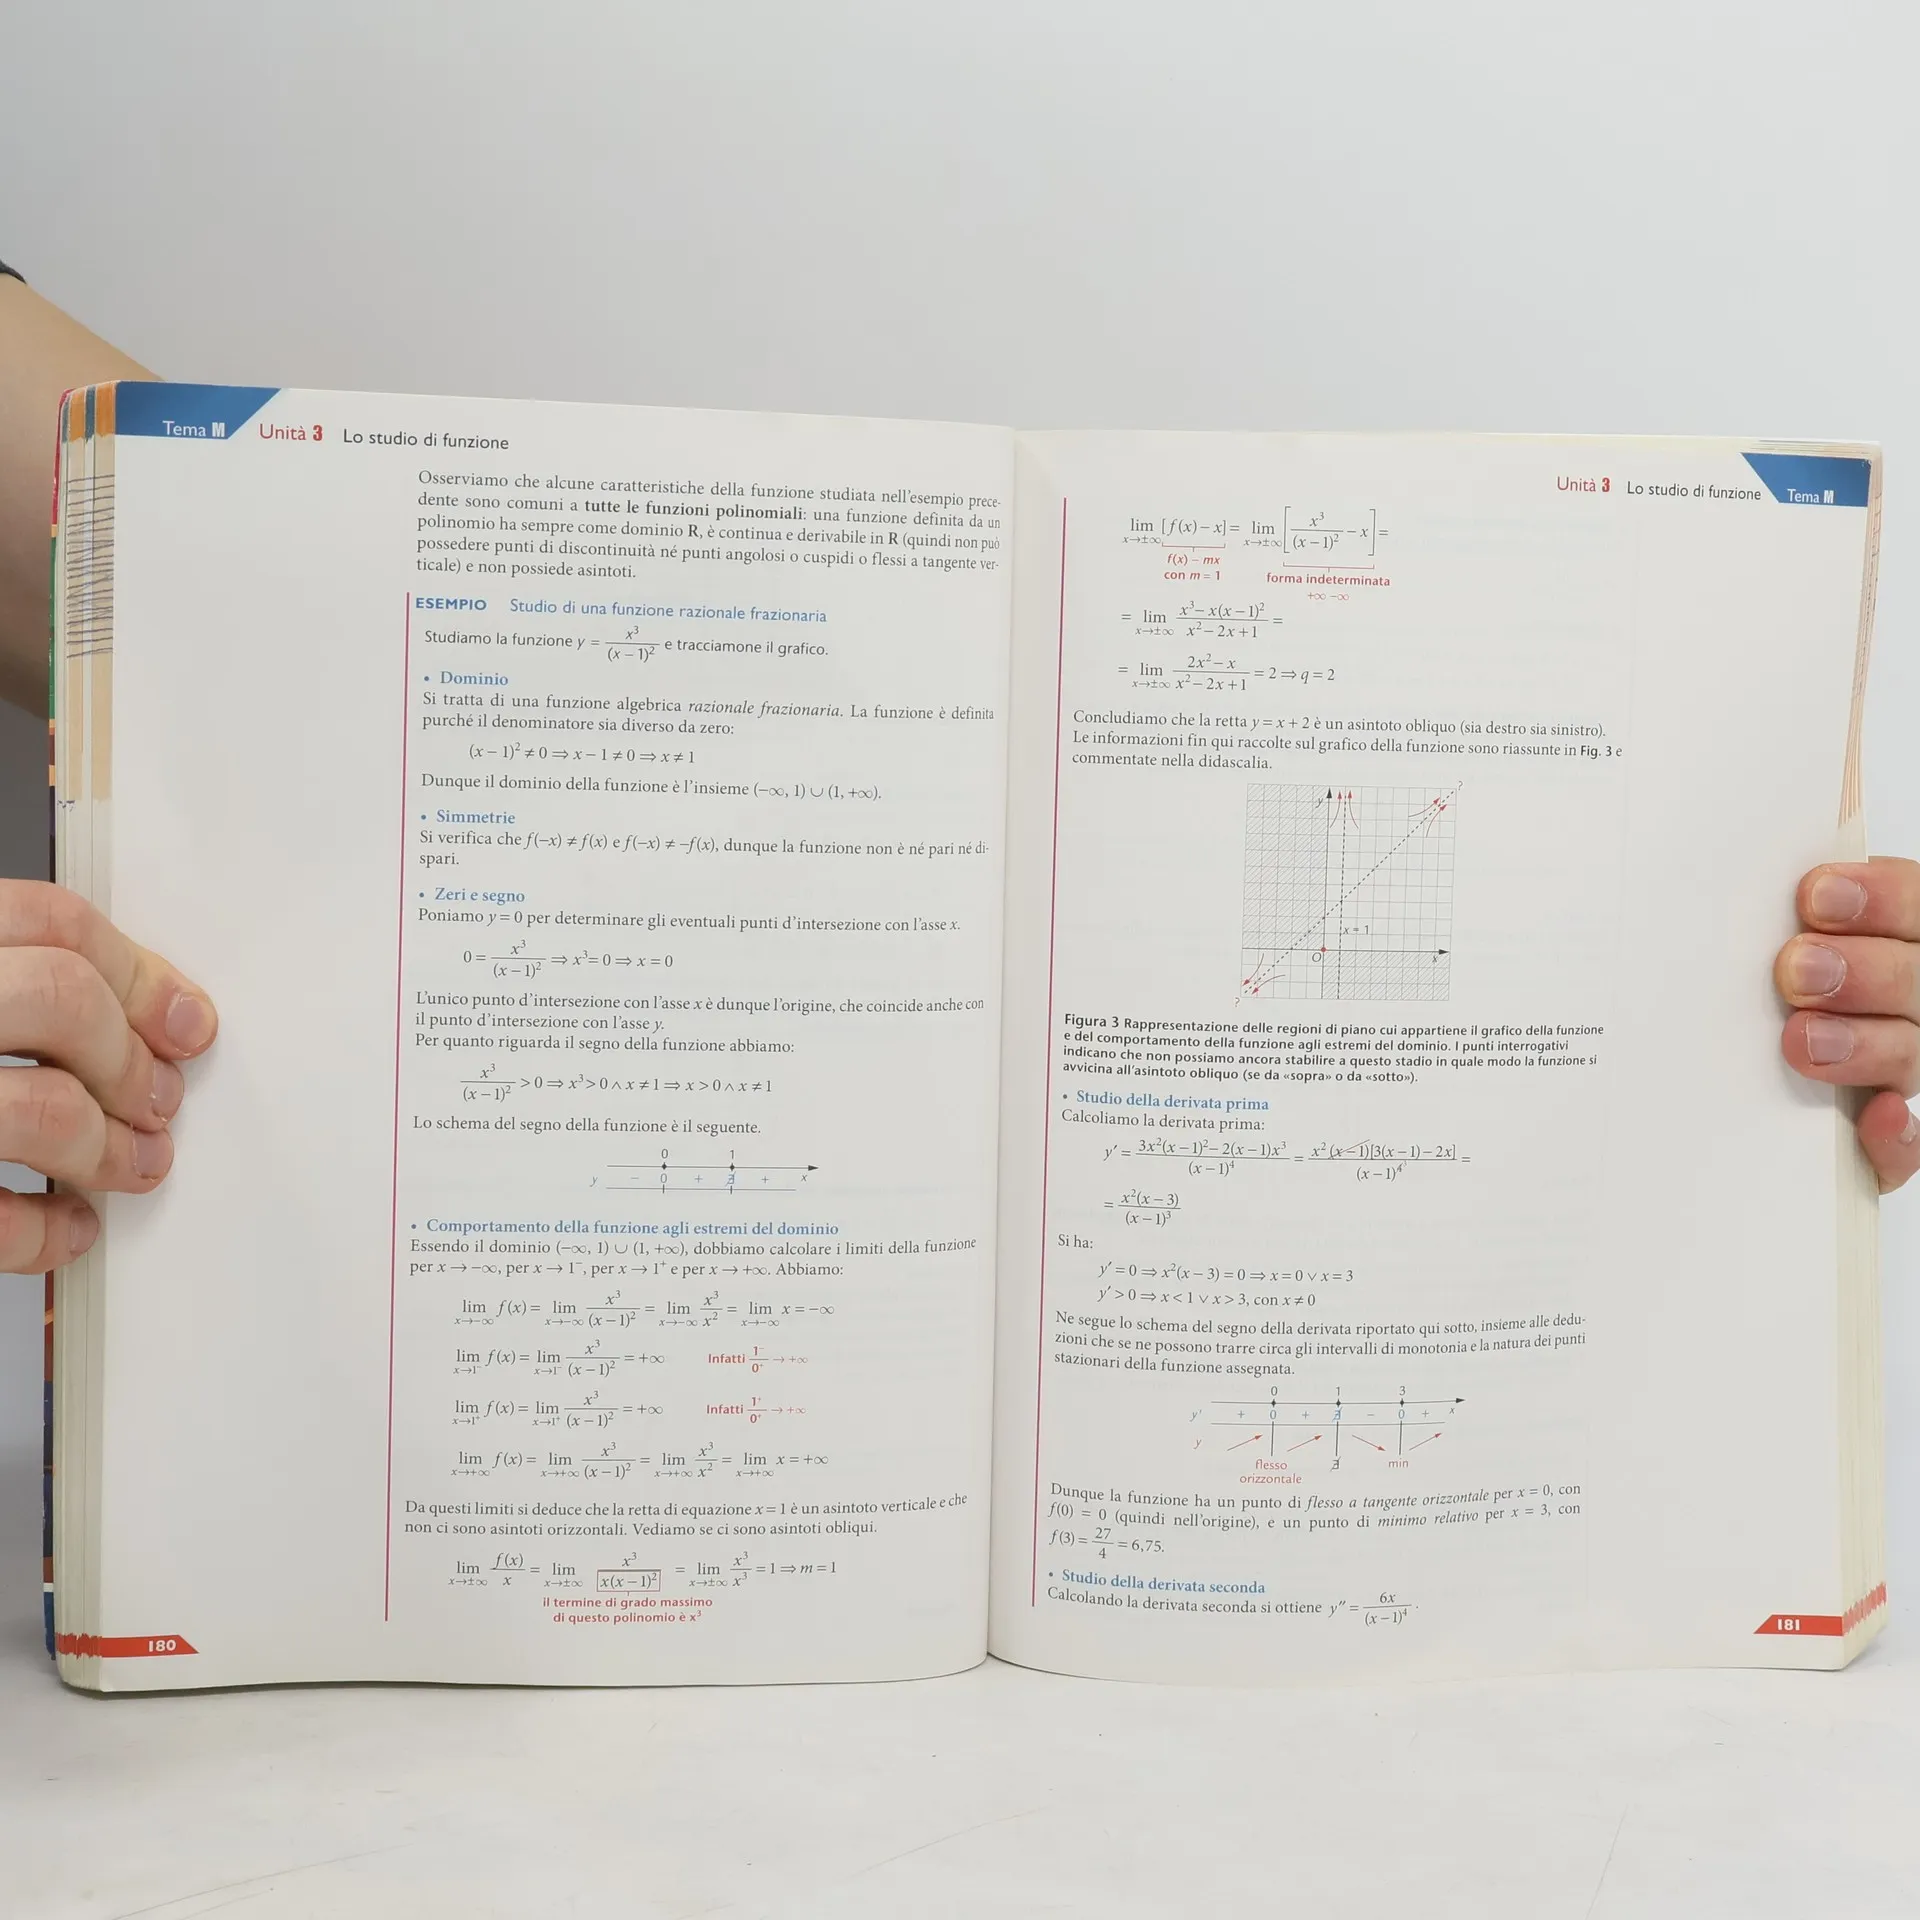 Tema M Unità 3 Lo studio di funzione
Osserviamo che alcune caratteristiche della funzione studiata nell'esempio prece-
dente sono comuni a tutte le funzioni polinomiali: una funzione definita da un
polinomio ha sempre come dominio R, è continua e derivabile in R (quindi non può
possedere punti di discontinuità né punti angolosi o cuspidi o flessi a tangente ver-
ticale) e non possiede asintoti.
ESEMPIO Studio di una funzione razionale frazionaria
Studiamo la funzione y = x³/(x – 1)² e tracciamone il grafico.
• Dominio
Si tratta di una funzione algebrica razionale frazionaria. La funzione è definita
purché il denominatore sia diverso da zero:
(x – 1)² ≠ 0 ⇒ x – 1 ≠ 0 ⇒ x ≠ 1
Dunque il dominio della funzione è l'insieme (–∞, 1) ∪ (1, +∞).
• Simmetrie
Si verifica che f(–x) ≠ f(x) e f(–x) ≠ –f(x), dunque la funzione non è né pari né di-
spari.
• Zeri e segno
Poniamo y = 0 per determinare gli eventuali punti d'intersezione con l'asse x.
0 = x³/(x – 1)² ⇒ x³ = 0 ⇒ x = 0
L'unico punto d'intersezione con l'asse x è dunque l'origine, che coincide anche con
il punto d'intersezione con l'asse y.
Per quanto riguarda il segno della funzione abbiamo:
x³/(x – 1)² > 0 ⇒ x³ > 0 ∧ x ≠ 1 ⇒ x > 0 ∧ x ≠ 1
Lo schema del segno della funzione è il seguente.
0 1
y – 0 + ∄ + x
• Comportamento della funzione agli estremi del dominio
Essendo il dominio (–∞, 1) ∪ (1, +∞), dobbiamo calcolare i limiti della funzione
per x → –∞, per x → 1⁻, per x → 1⁺ e per x → +∞. Abbiamo:
lim x→–∞ f(x) = lim x→–∞ x³/(x – 1)² = lim x→–∞ x³/x² = lim x→–∞ x = –∞
lim x→1⁻ f(x) = lim x→1⁻ x³/(x – 1)² = +∞ Infatti 1⁻/0⁺ → +∞
lim x→1⁺ f(x) = lim x→1⁺ x³/(x – 1)² = +∞ Infatti 1⁺/0⁺ → +∞
lim x→+∞ f(x) = lim x→+∞ x³/(x – 1)² = lim x→+∞ x³/x² = lim x→+∞ x = +∞
Da questi limiti si deduce che la retta di equazione x = 1 è un asintoto verticale e che
non ci sono asintoti orizzontali. Vediamo se ci sono asintoti obliqui.
lim x→±∞ f(x)/x = lim x→±∞ x³/x(x – 1)² = lim x→±∞ x³/x³ = 1 ⇒ m = 1
il termine di grado massimo
di questo polinomio è x³
180
Unità 3 Lo studio di funzione Tema M
lim x→±∞ [f(x) – x] = lim x→±∞ [x³/(x – 1)² – x] =
f(x) – mx
con m = 1 forma indeterminata
+∞ –∞
= lim x→±∞ x³ – x(x – 1)²/x² – 2x + 1 =
= lim x→±∞ 2x² – x/x² – 2x + 1 = 2 ⇒ q = 2
Concludiamo che la retta y = x + 2 è un asintoto obliquo (sia destro sia sinistro).
Le informazioni fin qui raccolte sul grafico della funzione sono riassunte in Fig. 3 e
commentate nella didascalia.
y ?
x = 1
O x
?
Figura 3 Rappresentazione delle regioni di piano cui appartiene il grafico della funzione
e del comportamento della funzione agli estremi del dominio. I punti interrogativi
indicano che non possiamo ancora stabilire a questo stadio in quale modo la funzione si
avvicina all'asintoto obliquo (se da «sopra» o da «sotto»).
• Studio della derivata prima
Calcoliamo la derivata prima:
y' = 3x²(x – 1)² – 2(x – 1)x³/(x – 1)⁴ = x²(x – 1)[3(x – 1) – 2x]/(x – 1)⁴ =
= x²(x – 3)/(x – 1)³
Si ha:
y' = 0 ⇒ x²(x – 3) = 0 ⇒ x = 0 ∨ x = 3
y' > 0 ⇒ x < 1 ∨ x > 3, con x ≠ 0
Ne segue lo schema del segno della derivata riportato qui sotto, insieme alle dedu-
zioni che se ne possono trarre circa gli intervalli di monotonia e la natura dei punti
stazionari della funzione assegnata.
0 1 3
y' + 0 + ∄ – 0 + x
y
flesso ∄ min
orizzontale
Dunque la funzione ha un punto di flesso a tangente orizzontale per x = 0, con
f(0) = 0 (quindi nell'origine), e un punto di minimo relativo per x = 3, con
f(3) = 27/4 = 6,75.
• Studio della derivata seconda
Calcolando la derivata seconda si ottiene y'' = 6x/(x – 1)⁴.
181